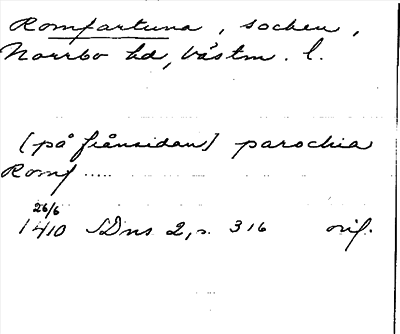 Romfartuna, socken,
Norrbo hd, Västm. l.
[på frånsidan] parochia
Romf.....
26/6
1410 SDns 2, s. 316 orig.